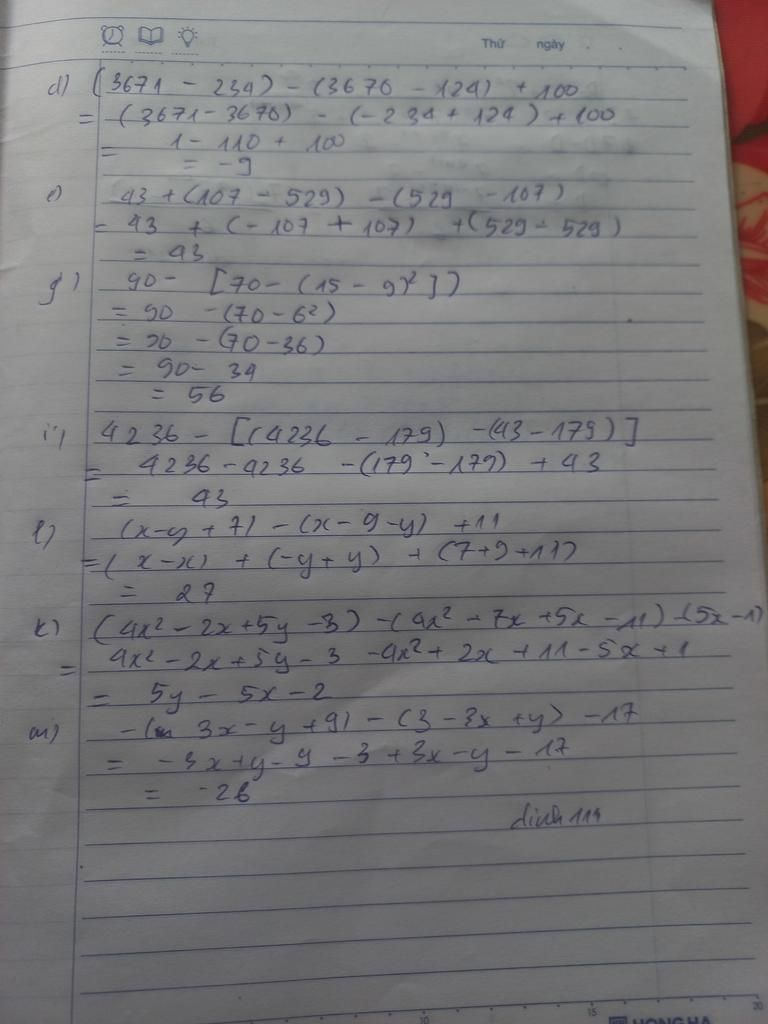 Thứ ngày
d) (3671 - 234) - (3670 - 124) + 100
= (3671 - 3670) - (-234 + 124) + 100
= 1 - 110 + 100
= -9
e) 43 + (107 - 529) - (529 - 107)
= 43 + (-107 + 107) + (529 - 529)
= 43
g) 90 - [70 - (15 - 9)² ])
= 90 - (70 - 6²)
= 90 - (70 - 36)
= 90 - 34
= 56
i) 4236 - [(4236 - 179) - (43 - 179)]
= 4236 - 4236 - (179 - 179) + 43
= 43
l) (x - y + 7) - (x - 9 - y) + 11
= (x - x) + (-y + y) + (7 + 9 + 11)
= 27
k) (4x² - 2x + 5y - 3) - (4x² - 7x + 5x - 11) - (5x - 1)
= 4x² - 2x + 5y - 3 - 4x² + 2x + 11 - 5x + 1
= 5y - 5x - 2
m) -( 3x - y + 9) - (3 - 3x + y) - 17
= -3x + y - 9 - 3 + 3x - y - 17
= -26
dinh 114
10 15 20
HONG HA